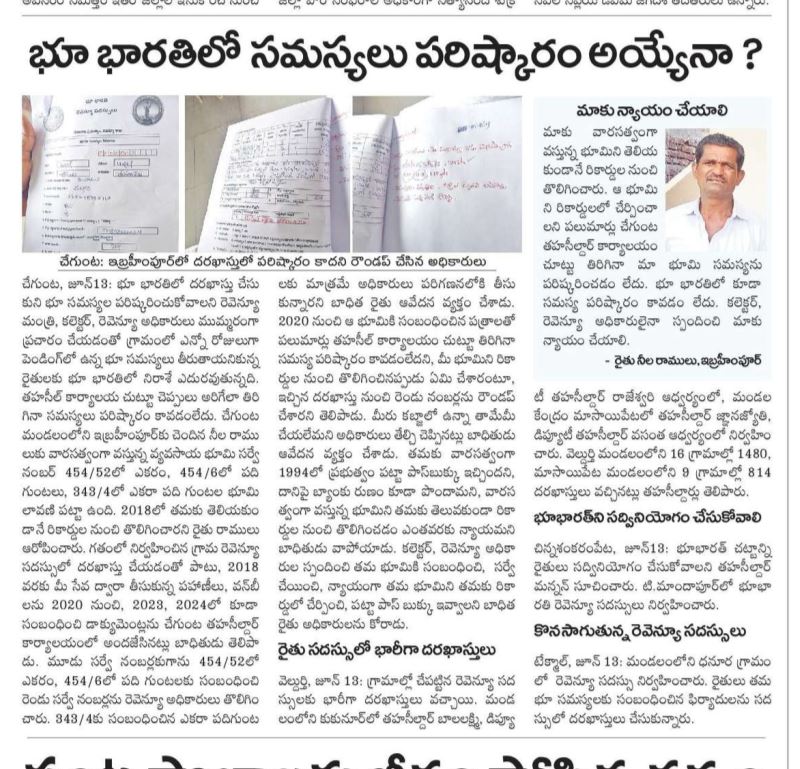 భూ భారతిలో సమస్యలు పరిష్కారం అయ్యేనా ?
చేగుంట: ఇబ్రహీంపూర్‌లో దరఖాస్తులో పరిష్కారం కాదని రౌండప్ చేసిన అధికారులు
చేగుంట, జూన్13: భూ భారతిలో దరఖాస్తు చేసు
కుని భూ సమస్యల పరిష్కరించుకోవాలని రెవెన్యూ
మంత్రి, కలెక్టర్, రెవెన్యూ అధికారులు ముమ్మరంగా
ప్రచారం చేయడంతో గ్రామంలో ఎన్నో రోజులుగా
పెండింగ్‌లో ఉన్న భూ సమస్యలు తీరుతాయనుకున్న
రైతులకు భూ భారతిలో నిరాశే ఎదురవుతున్నది.
తహసీల్ కార్యాలయ చుట్టూ చెప్పులు అరిగేలా తిరి
గినా సమస్యలు పరిష్కారం కావడంలేదు. చేగుంట
మండలంలోని ఇబ్రహీంపూర్‌కు చెందిన నీల రాము
లుకు వారసత్వంగా వస్తున్న వ్యవసాయ భూమి సర్వే
నంబర్ 454/52లో ఎకరం, 454/6లో పది
గుంటలు, 343/4లో ఎకరా పది గుంటల భూమి
లావణి పట్టా ఉంది. 2018లో తమకు తెలియకుం
డానే రికార్డుల నుంచి తొలిగించారని రైతు రాములు
ఆరోపించారు. గతంలో నిర్వహించిన గ్రామ రెవెన్యూ
సదస్సులో దరఖాస్తు చేయడంతో పాటు, 2018
వరకు మీ సేవ ద్వారా తీసుకున్న పహాణీలు, వన్‌బీ
లను 2020 నుంచి, 2023, 2024లో కూడా
సంబంధించి డాక్యుమెంట్లను చేగుంట తహసీల్దార్
కార్యాలయంలో అందజేసినట్లు బాధితుడు తెలిపా
డు. మూడు సర్వే నంబర్లకుగాను 454/52లో
ఎకరం, 454/6లో పది గుంటలకు సంబంధించి
రెండు సర్వే నంబర్లను రెవెన్యూ అధికారులు తొలిగిం
చారు. 343/4కు సంబంధించిన ఎకరా పదిగుంట
లకు మాత్రమే అధికారులు పరిగణనలోకి తీసు
కున్నారని బాధిత రైతు ఆవేదన వ్యక్తం చేశాడు.
2020 నుంచి ఆ భూమికి సంబంధించిన పత్రాలతో
పలుమార్లు తహసీల్ కార్యాలయం చుట్టూ తిరిగినా
సమస్య పరిష్కారం కావడంలేదని, మీ భూమిని రికా
ర్డుల నుంచి తొలిగించినప్పుడు ఏమి చేశారంటూ,
ఇచ్చిన దరఖాస్తు నుంచి రెండు నంబర్లను రౌండప్
చేశారని తెలిపాడు. మీరు కబ్జాలో ఉన్నా తామేమీ
చేయలేమని అధికారులు తేల్చి చెప్పినట్లు బాధితుడు
ఆవేదన వ్యక్తం చేశాడు. తమకు వారసత్వంగా
1994లో ప్రభుత్వం పట్టా పాస్‌బుక్కు ఇచ్చిందని,
దానిపై బ్యాంకు రుణం కూడా పొందామని, వారస
త్వంగా వస్తున్న భూమిని తమకు తెలువకుండా రికా
ర్డుల నుంచి తొలిగించడం ఎంతవరకు న్యాయమని
బాధితుడు వాపోయాడు. కలెక్టర్, రెవెన్యూ అధికా
రుల స్పందించి తమ భూమికి సంబంధించి, సర్వే
చేయించి, న్యాయంగా తమ భూమిని తమకు రికా
ర్డులో చేర్పించి, పట్టా పాస్ బుక్కు ఇవ్వాలని బాధిత
రైతు అధికారులను కోరాడు.
రైతు సదస్సులో భారీగా దరఖాస్తులు
వెల్దుర్తి, జూన్ 13: గ్రామాల్లో చేపట్టిన రెవెన్యూ సద
స్సులకు భారీగా దరఖాస్తులు వచ్చాయి. మండ
లంలోని కుకునూర్‌లో తహసీల్దార్ బాలలక్ష్మి, డిప్యూ
మాకు న్యాయం చేయాలి
మాకు వారసత్వంగా
వస్తున్న భూమిని తెలియ
కుండానే రికార్డుల నుంచి
తొలిగించారు. ఆ భూమి
ని రికార్డులలో చేర్పించా
లని పలుమార్లు చేగుంట
తహసీల్దార్ కార్యాలయం
చుట్టు తిరిగినా మా భూమి సమస్యను
పరిష్కరించడం లేదు. భూ భారతిలో కూడా
సమస్య పరిష్కారం కావడం లేదు. కలెక్టర్,
రెవెన్యూ అధికారులైనా స్పందించి మాకు
న్యాయం చేయాలి.
- రైతు నీల రాములు,ఇబ్రహీంపూర్
టీ తహసీల్దార్ రాజేశ్వరి ఆధ్వర్యంలో, మండల
కేంద్రం మాసాయిపేటలో తహసీల్దార్ జ్ఞానజ్యోతి,
డిప్యూటీ తహసీల్దార్ వసంత ఆధ్వర్యంలో నిర్వహిం
చారు. వెల్దుర్తి మండలంలోని 16 గ్రామాల్లో 1480,
మాసాయిపేట మండలంలోని 9 గ్రామాల్లో 814
దరఖాస్తులు వచ్చినట్లు తహసీల్దార్లు తెలిపారు.
భూభారత్‌ని సద్వినియోగం చేసుకోవాలి
చిన్నశంకరంపేట, జూన్13: భూభారత్ చట్టాన్ని
రైతులు సద్వినియోగం చేసుకోవాలని తహసీల్దార్
మన్నన్ సూచించారు. టి.మాందాపూర్‌లో భూభా
రతి రెవెన్యూ సదస్సులు నిర్వహించారు.
కొనసాగుతున్న రెవెన్యూ సదస్సులు
టేక్మాల్, జూన్ 13: మండలంలోని ధనూర గ్రామం
లో రెవెన్యూ సదస్సు నిర్వహించారు. రైతులు తమ
భూ సమస్యలకు సంబంధించిన ఫిర్యాదులను సద
స్సులో దరఖాస్తులు చేసుకున్నారు.